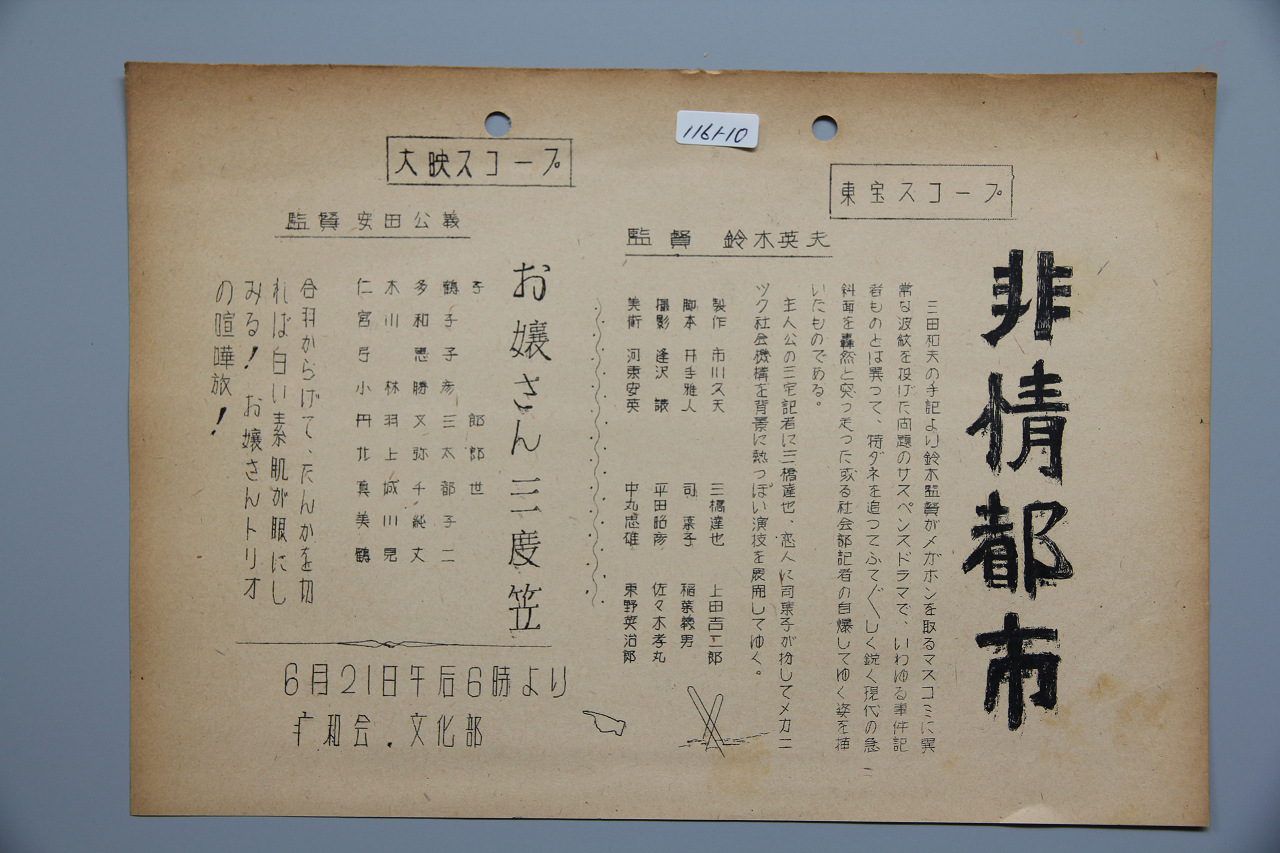 東宝スコープ
非情都市
監督 鈴木英夫
三田和夫の手記より鈴木監督がメガホンを取るマスコミに異
常な波紋を投げた問題のサスペンスドラマで、いわゆる事件記
者ものとは異って、特ダネを追つてふて〲しく鋭く現代の急
斜面を轟然と突っ走った或る社会部記者の自爆してゆく姿を描
いたものである。
主人公の三宅記者に三橋達也、恋人に司葉子が扮してメカニ
ック社会機構を背景に熱っぽい演技を展開してゆく。
製作 市川久夫 三橋達也 上田吉二郎
脚本 井手雅人 司 葉子 稲葉義男
撮影 逢沢 譲 平田昭彦 佐々木孝丸
美術 河東安英 中丸忠雄 東野英治郎
大映スコープ
監督 安田公義
お嬢さん三度笠
仁木多鶴子
宮川和子
弓 恵子
小林勝彦
丹羽又三郎
井上弥太郎
真城千都世
美川純子
鶴見丈二
合羽からげて、たんかを切
れば白い素肌が眼にし
みる！ お嬢さんトリオ
の喧嘩旅！
6月21日午后6時より
和会.文化部
1161-10